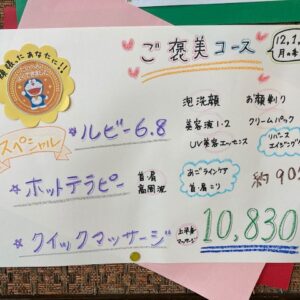 頑張ったあなたに!!
ご褒美コース
12.1
月の
スペシャル
☆ルビー6.8
泡洗顔
お顔剃り
美容液1・2
クリームパック
UV美容エッセンス
リバース
エイジング
☆ホットテラピー
首・肩
高周波
あごラインケア
首・肩こり
約90
☆クイックマッサージ
上半身
マッサージ
10,830